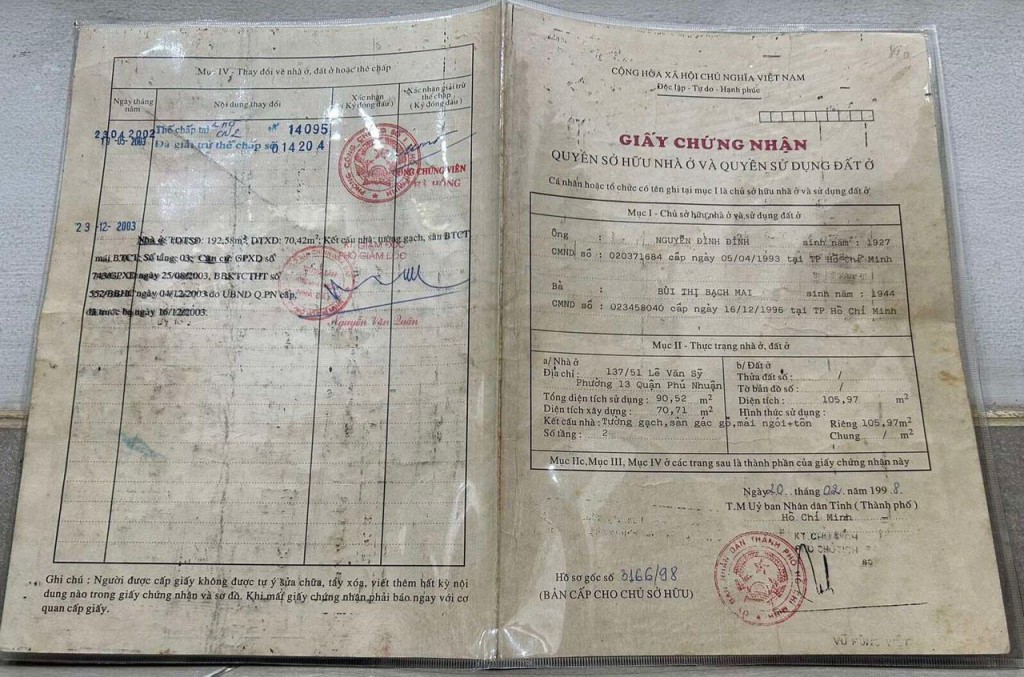 Mục IV - Thay đổi về nhà ở, đất ở hoặc thế chấp
Ngày tháng năm
Nội dung thay đổi
Xác nhận
( Ký đóng dấu )
Xác nhận giải trừ thế chấp
( Ký đóng dấu )
23.04.2002 Thế chấp tại 14095
19-05-2003 Đã giải trừ thế chấp số 014204
CÔNG CHỨNG VIÊN
23-12-2003
Nhà ở: TDTSD: 192,58m², DTXD: 70,42m²; Kết cấu nhà: tường gạch, sàn BTCT
mái BTCT; Số tầng: 03; Căn cứ: GPXD số
743/GPXD ngày 25/08/2003, BBKTCTHT số
ngày 04/12/2003 do UBND Q.PN cấp,
đã trước bạ ngày 16/12/2003.
PHÓ GIÁM ĐỐC
Nguyễn Văn Quân
Ghi chú : Người được cấp giấy không được tự ý sửa chữa, tẩy xóa, viết thêm bất kỳ nội
dung nào trong giấy chứng nhận và sơ đồ. Khi mất giấy chứng nhận phải báo ngay với cơ
quan cấp giấy.
CỘNG HÒA XÃ HỘI CHỦ NGHĨA VIỆT NAM
Độc lập - Tự do - Hạnh phúc
GIẤY CHỨNG NHẬN
QUYỀN SỞ HỮU NHÀ Ở VÀ QUYỀN SỬ DỤNG ĐẤT Ở
Cá nhân hoặc tổ chức có tên ghi tại mục I là chủ sở hữu nhà ở và sử dụng đất ở
Mục I - Chủ sở hữu nhà ở và sử dụng đất ở
Ông : NGUYỄN ĐÌNH ĐÍNH sinh năm : 1927
CMND số : 020371684 cấp ngày 05/04/1993 tại TP Hồ Chí Minh
Bà : BÙI THỊ BẠCH MAI sinh năm : 1944
CMND số : 023458040 cấp ngày 16/12/1996 tại TP Hồ Chí Minh
Mục II - Thực trạng nhà ở, đất ở
a/ Nhà ở
Địa chỉ : 137/51 Lê Văn Sỹ
Phường 13 Quận Phú Nhuận
Tổng diện tích sử dụng : 90,52 m²
Diện tích xây dựng : 70,71 m²
Kết cấu nhà : Tường gạch, sàn gác gỗ, mái ngói+tôn
Số tầng : 2
b/ Đất ở
Thửa đất số : /
Tờ bản đồ số : /
Diện tích : 105,97 m²
Hình thức sử dụng :
Riêng 105,97m²
Chung / m²
Mục IIc, Mục III, Mục IV ở các trang sau là thành phần của giấy chứng nhận này
Ngày 20 tháng 02 năm 1998.
T.M Uỷ ban Nhân dân Tỉnh ( Thành phố )
Hồ Chí Minh
KT.CHỦ TỊCH
PHÓ CHỦ TỊCH
Hồ sơ gốc số 3166/98
(BẢN CẤP CHO CHỦ SỞ HỮU)